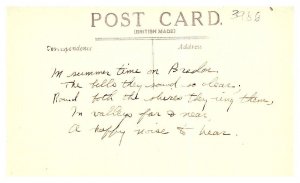 POST CARD.
3968
(BRITISH MADE)
Correspondence
Address
In summer time on Bredon
The bells they sound so clear;
Round both the shires they ring them,
In valleys far & near,
A happy noise to hear.